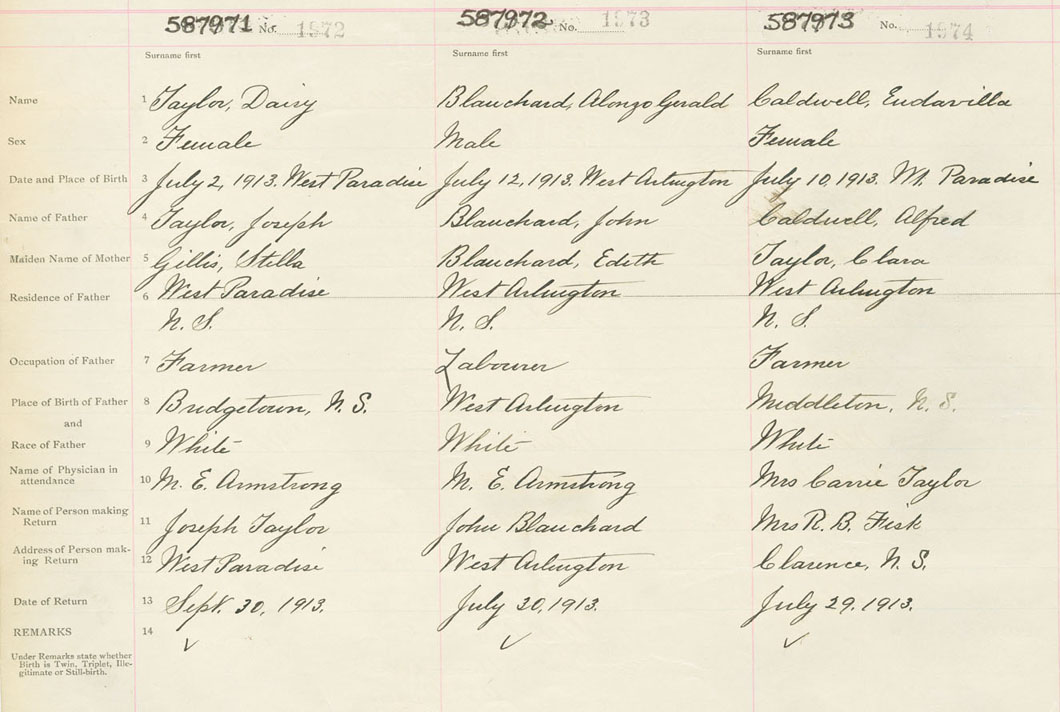 587971 No. 1972 587972 No. 1973 587973 No. 1974
Surname first Surname first Surname first
Name 1 Taylor, Daisy Blanchard, Alonzo Gerald Caldwell, Eudavilla
Sex 2 Female Male Female
Date and Place of Birth 3 July 2, 1913. West Paradise July 12, 1913. West Arlington July 10, 1913. Mt. Paradise
Name of Father 4 Taylor, Joseph Blanchard, John Caldwell, Alfred
Maiden Name of Mother 5 Gillis, Stella Blanchard, Edith Taylor, Clara
Residence of Father 6 West Paradise West Arlington West Arlington
N. S. N. S. N. S.
Occupation of Father 7 Farmer Labourer Farmer
Place of Birth of Father 8 Bridgetown, N. S. West Arlington Middleton, N. S.
and
Race of Father 9 White White White
Name of Physician in
attendance 10 M. E. Armstrong M. E. Armstrong Mrs Carrie Taylor
Name of Person making
Return 11 Joseph Taylor John Blanchard Mrs R. B. Fisk
Address of Person mak-
ing Return 12 West Paradise West Arlington Clarence, N. S.
Date of Return 13 Sept. 30, 1913. July 20, 1913. July 29, 1913.
REMARKS 14
Under Remarks state whether
Birth is Twin, Triplet, Ille-
gitimate or Still-birth.